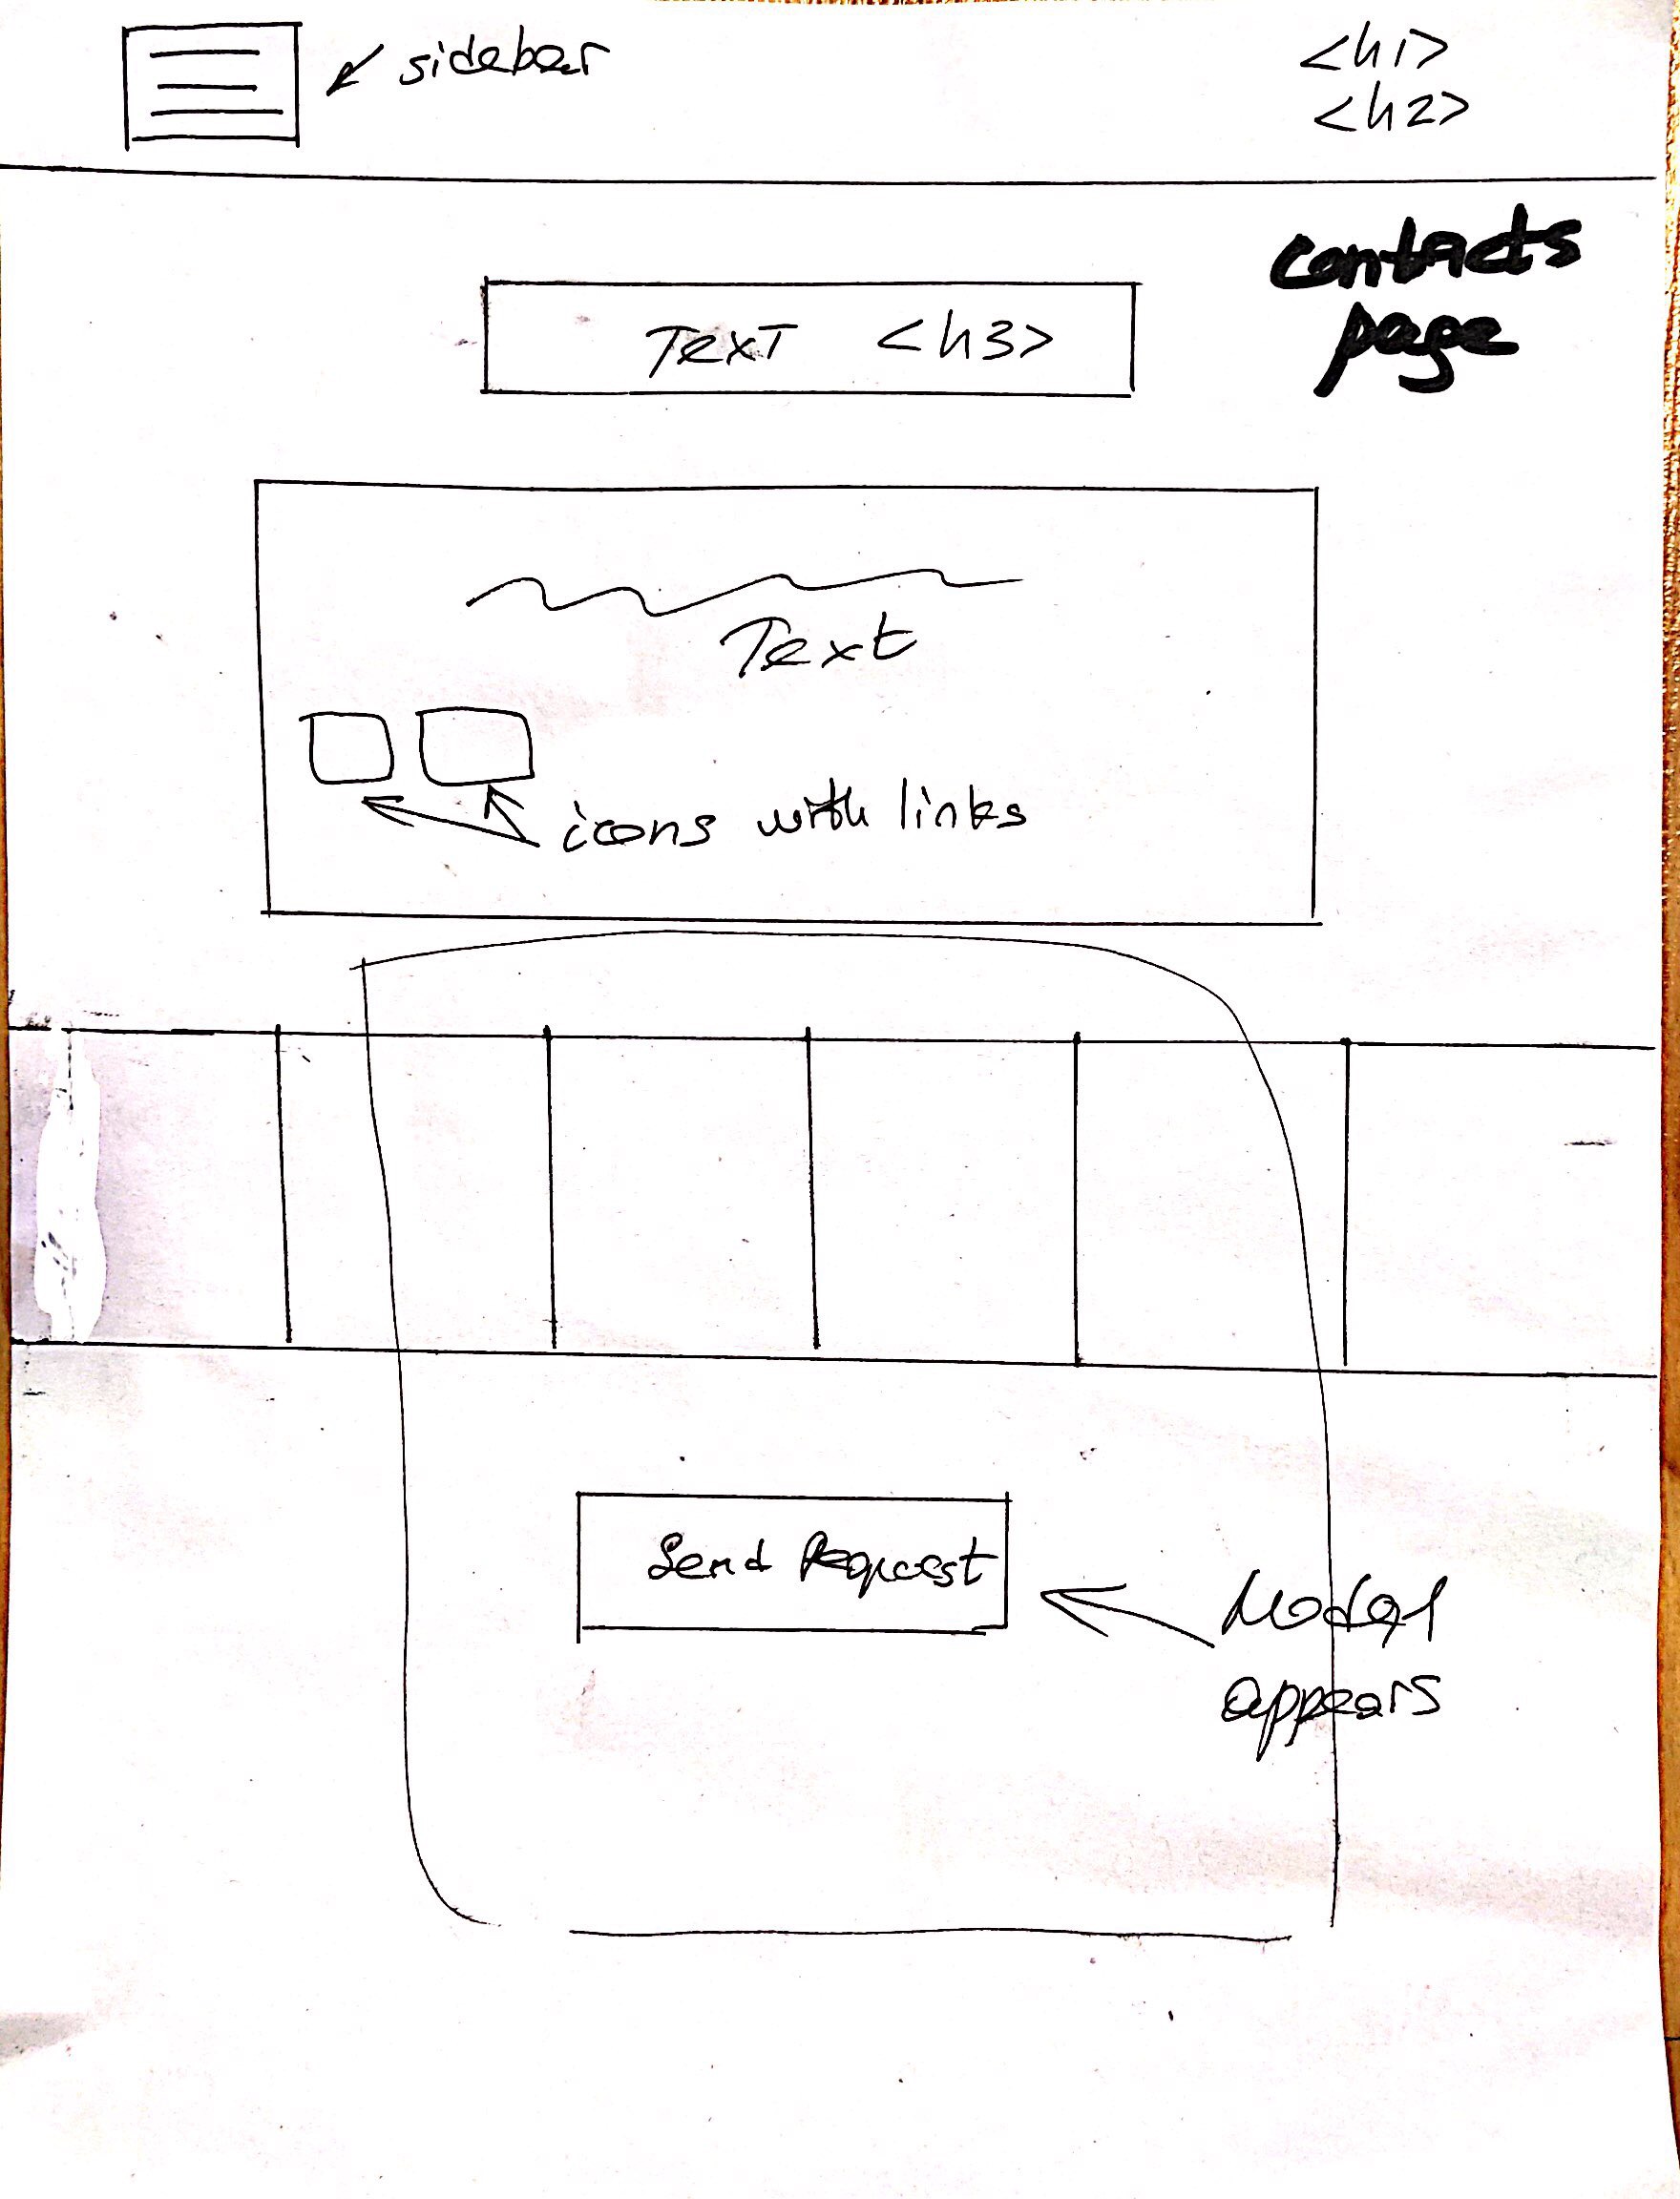 sidebar
<h1>
<h2>
contacts
page
Text <h3>
Text
icons with links
Send Request
Modal
appears